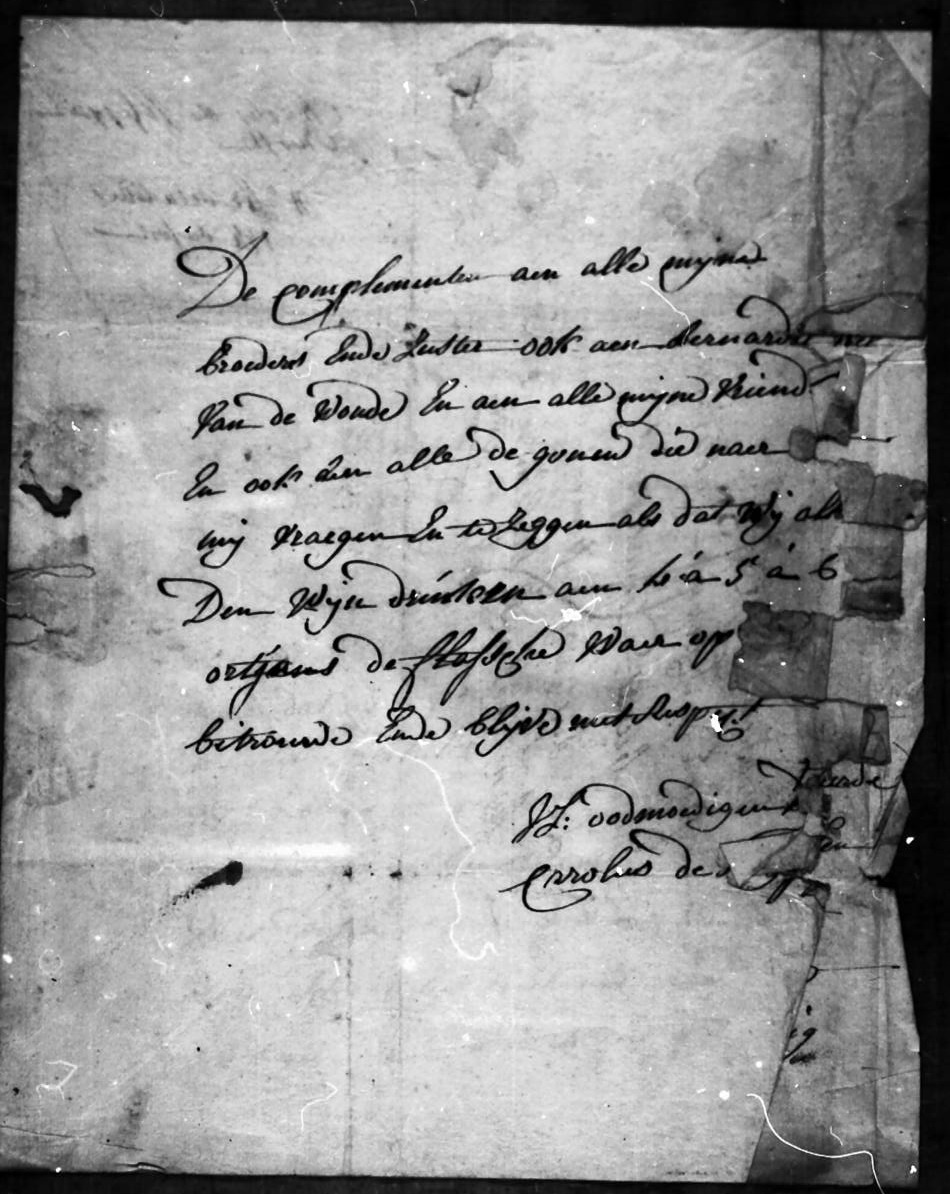 De complementen aen alle mijne
broeders Ende Zuster ook aen Bernardus
Van de Woude En aen alle mijne Vriend
En ook aen alle de gonene die naer
mij Vraegen En te Zeggen als dat Wij als
Den Wijn drinken aen 4 á 5 á 6
ortjens de flassche Waer op
betrouwe Ende blijve met Respect
UE: oodmoedigen
Carolus de